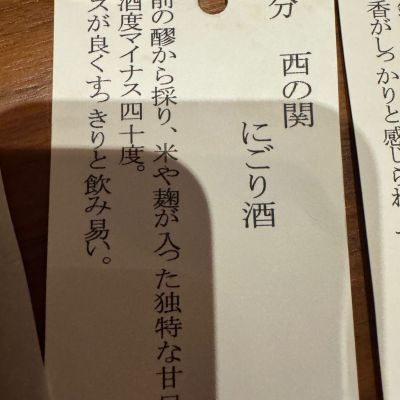 香がしっかりと感じられ、
分
西の関
にごり酒
前の醪から採り、米や麹が入った独特な甘口
酒度マイナス四十度。
スが良くすっきりと飲み易い。